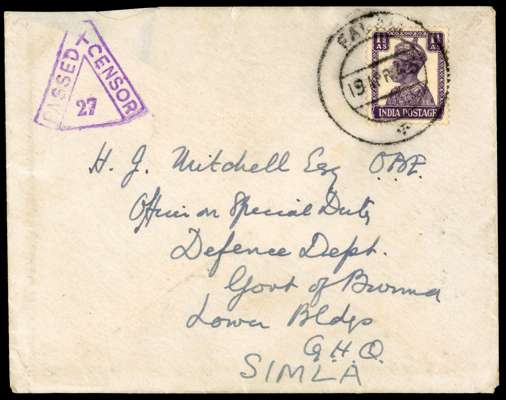 PASSED
CENSOR
27
19 APR
1½ AS
INDIA POSTAGE
H. J. Mitchell Esq OBE.
Officer on Special Duty
Defence Dept.
Govt of Burma
Lower Bldgs
G.H.Q.
SIMLA